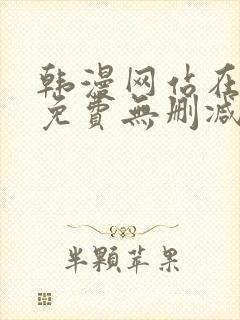 韩漫网站在
免費無删减
半顆苹果